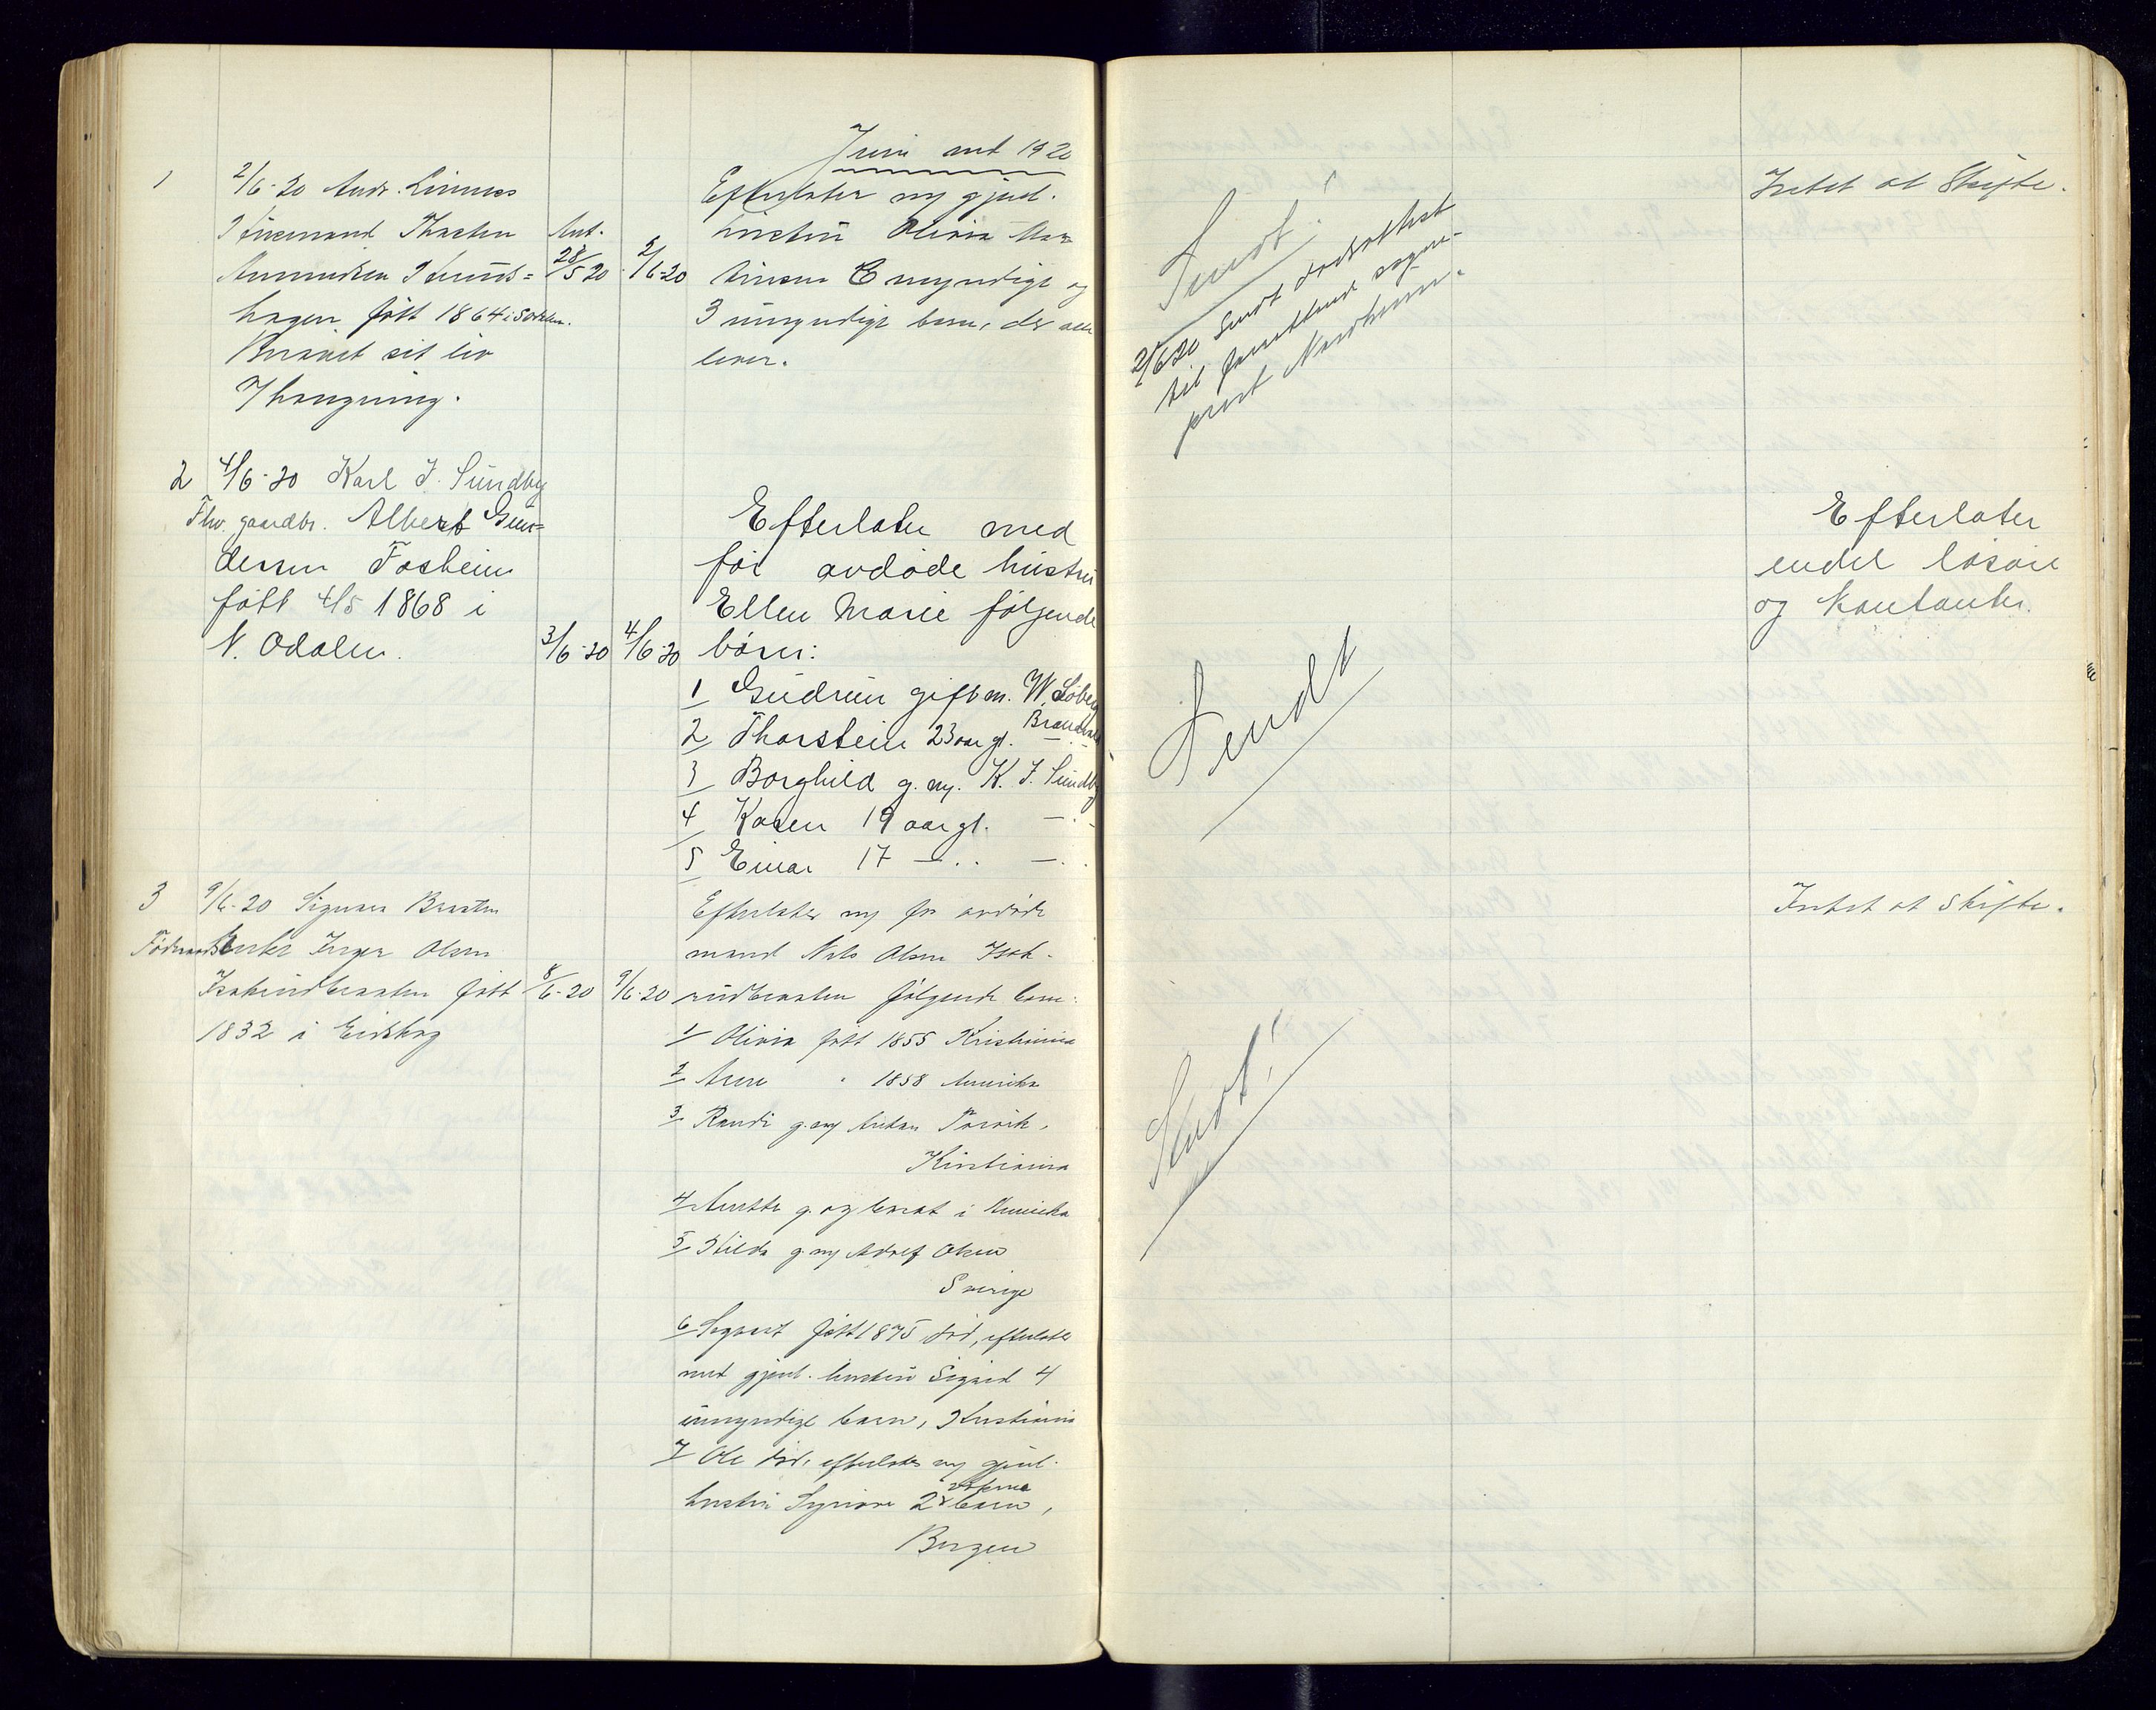 Juni mt 1920
1
2/6-20 Andr. Linnes
Husmand Thorsten
Amundsen Hunds=
hagen født 1864 i Sodalen.
Berøvet sit liv
v/ hængning.
Ant.
28/5 20
2/6-20
Efterlater m gjenl.
hustru Olivia Mar
tinsen 6 myndige og
3 umyndige barn, der alle
lever.
Sendt!
2/6 20 Sendt dødsattest
til forrettende sogne-
prest Nordhum.
Intet at Skifte.
2
4/6-20 Karl J. Sundby
Fhv. gaardbr. Albert Gun=
dersen Fosheim
født 4/5 1868 i
N. Odalen.
3/6-20
4/6-20
Efterlater med
før avdøde hustru
Ellen Marie følgende
børn:
1 Gudrun gift m. W. Løberg
Brandval
2 Thorstein 23 aar gl. — " —
3 Borghild g. m. K. J. Sundby
4 Karen 19 aar gl. — " —
5 Einar 17 — " — — "
Sendt
Efterlater
endel løsøre
og kontanter.
3
9/6-20 Sigurd Braaten
Føderaadsenke Inger Olsen
Isakrudbraaten født
1832 i Eidskog
8/6-20
9/6-20
Efterlater m før avdøde
mand Nils Olsen Isak-
rudbraaten følgende barn:
1 Olivia født 1855 Kristiania
2 Arne " 1858 Amerika
3 Randi g. m Anton
Kristiania
4 Anette g. og bosat i Amerika
5 Hilda g. m Adolf Olsen
Sverige
6 Sigvart født 1875 død, efterlater
med gjenl. hustru Sigrid 4
umyndige barn, Kristiania
7 Ole død, efterlater m gjenl.
hustru 2 voksne barn,
Bergen
Sendt!
Intet at skifte.